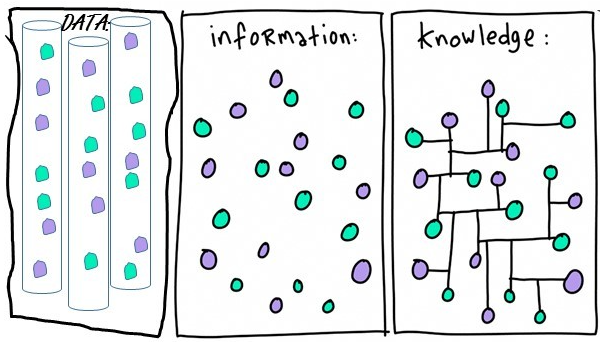 DATA
information:
knowledge: